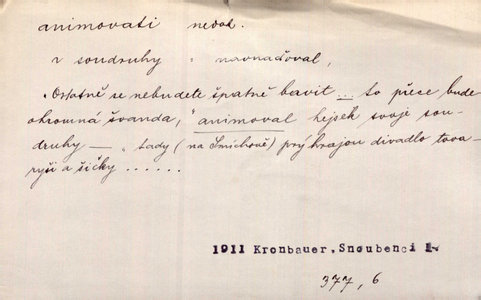 animovati nedok.
v soudruhy " navnaďoval,
"Ostatně se nebudete špatně bavit ... to přece bude
ohromná švanda," animoval hejsek svoje sou-
druhy — "tady (na Smíchově) prý hrajou divadlo tova-
ryši a šičky ......
1911 Kronbauer, Snoubenci I
377, 6